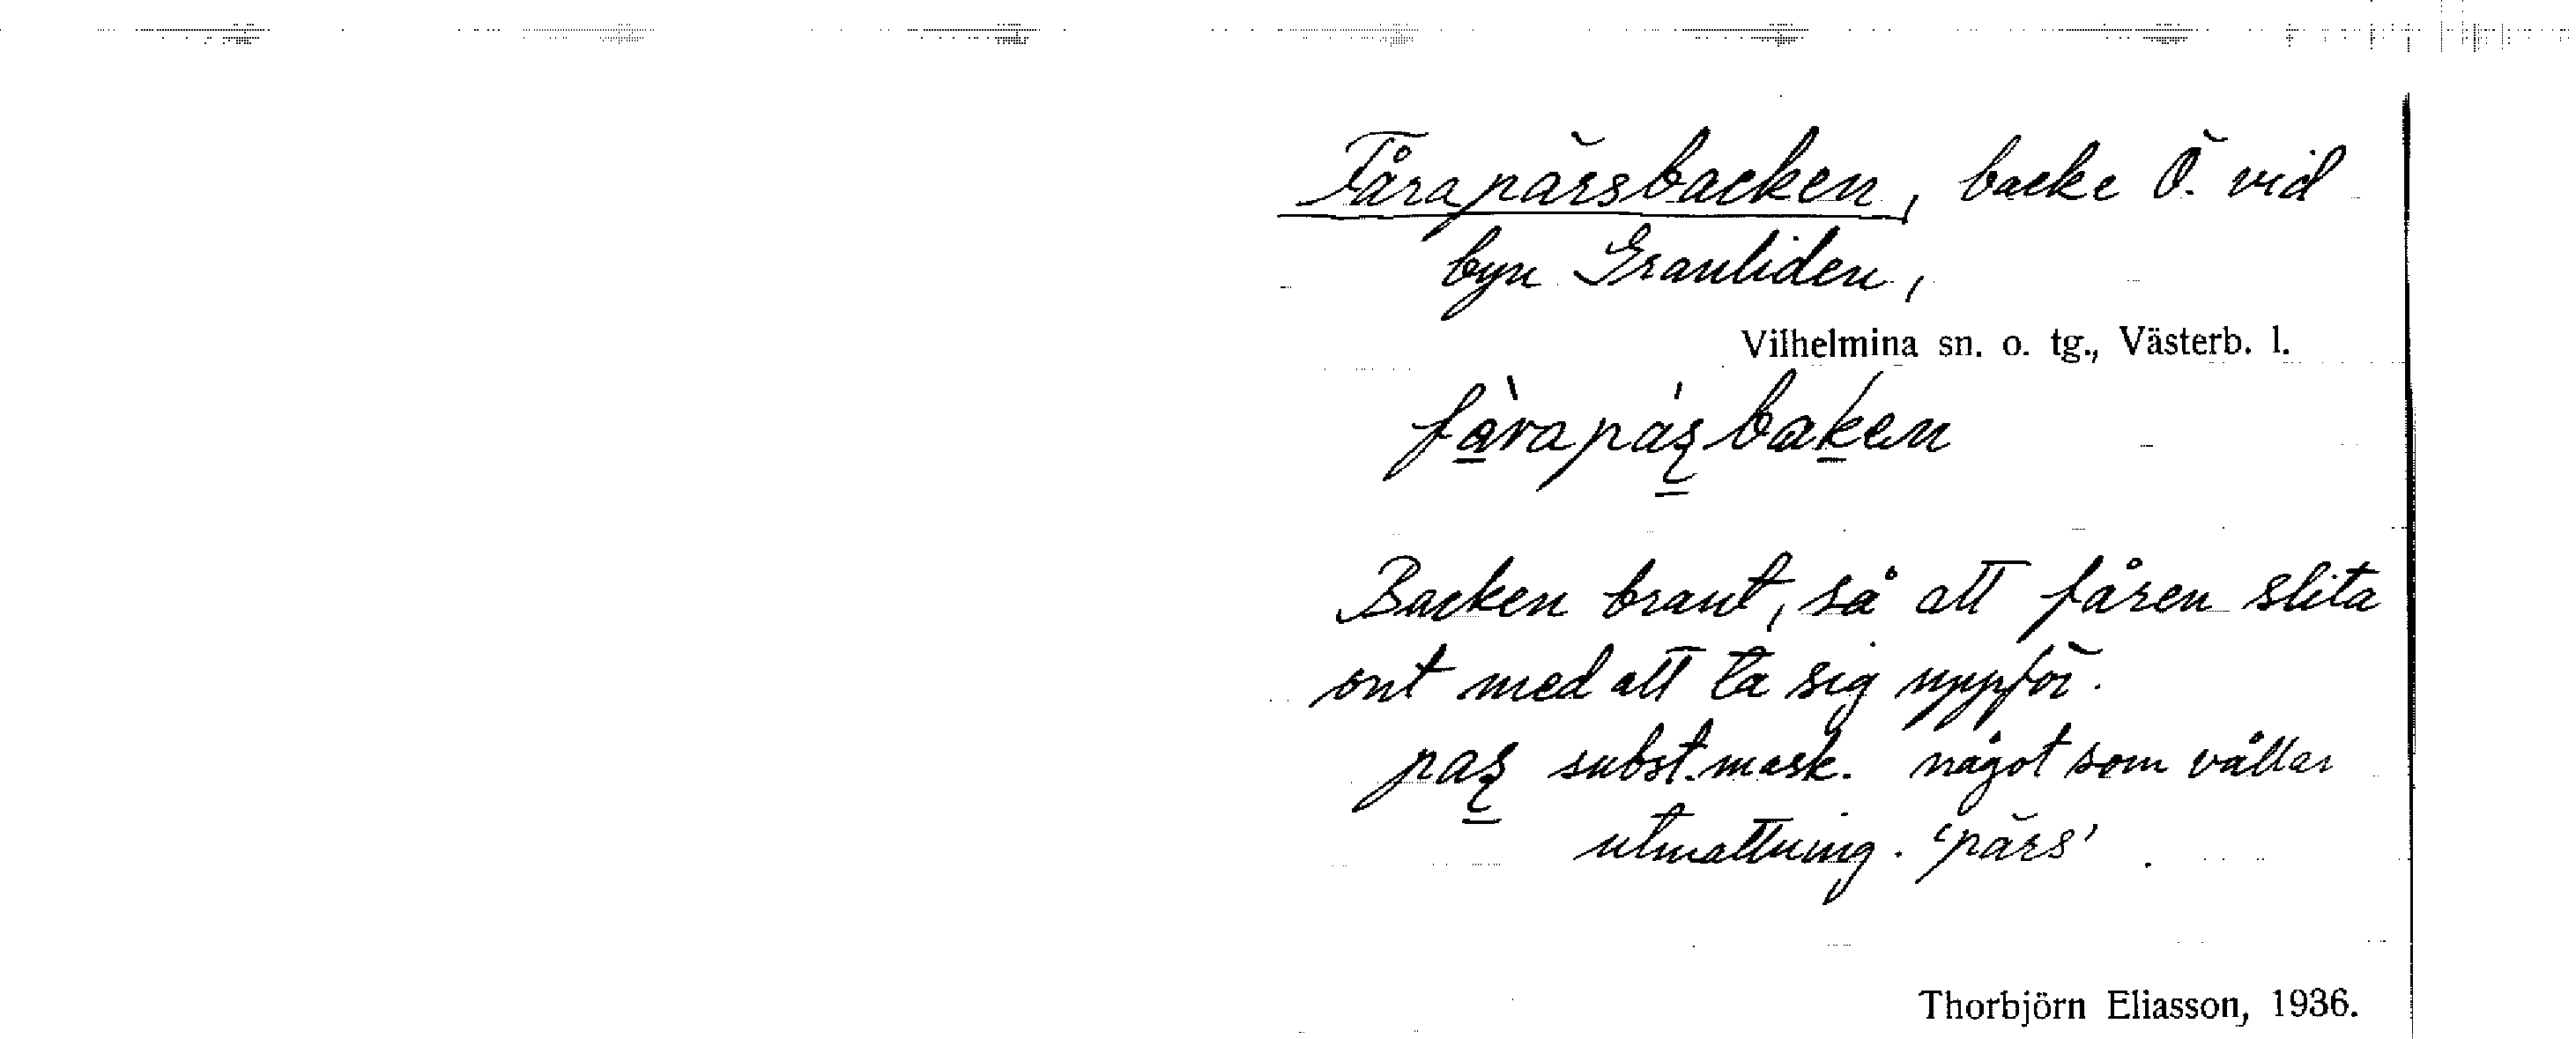 Fårapärsbacken, backe Ö. vid
byn Granliden,
Vilhelmina sn. o. tg., Västerb. l.
fàrapáʂbaken
Backen brant, så att fåren slita
ont med att ta sig uppför.
paʂ subst. mask. något som vållar
utmattning. 'pärs'.
Thorbjörn Eliasson, 1936.